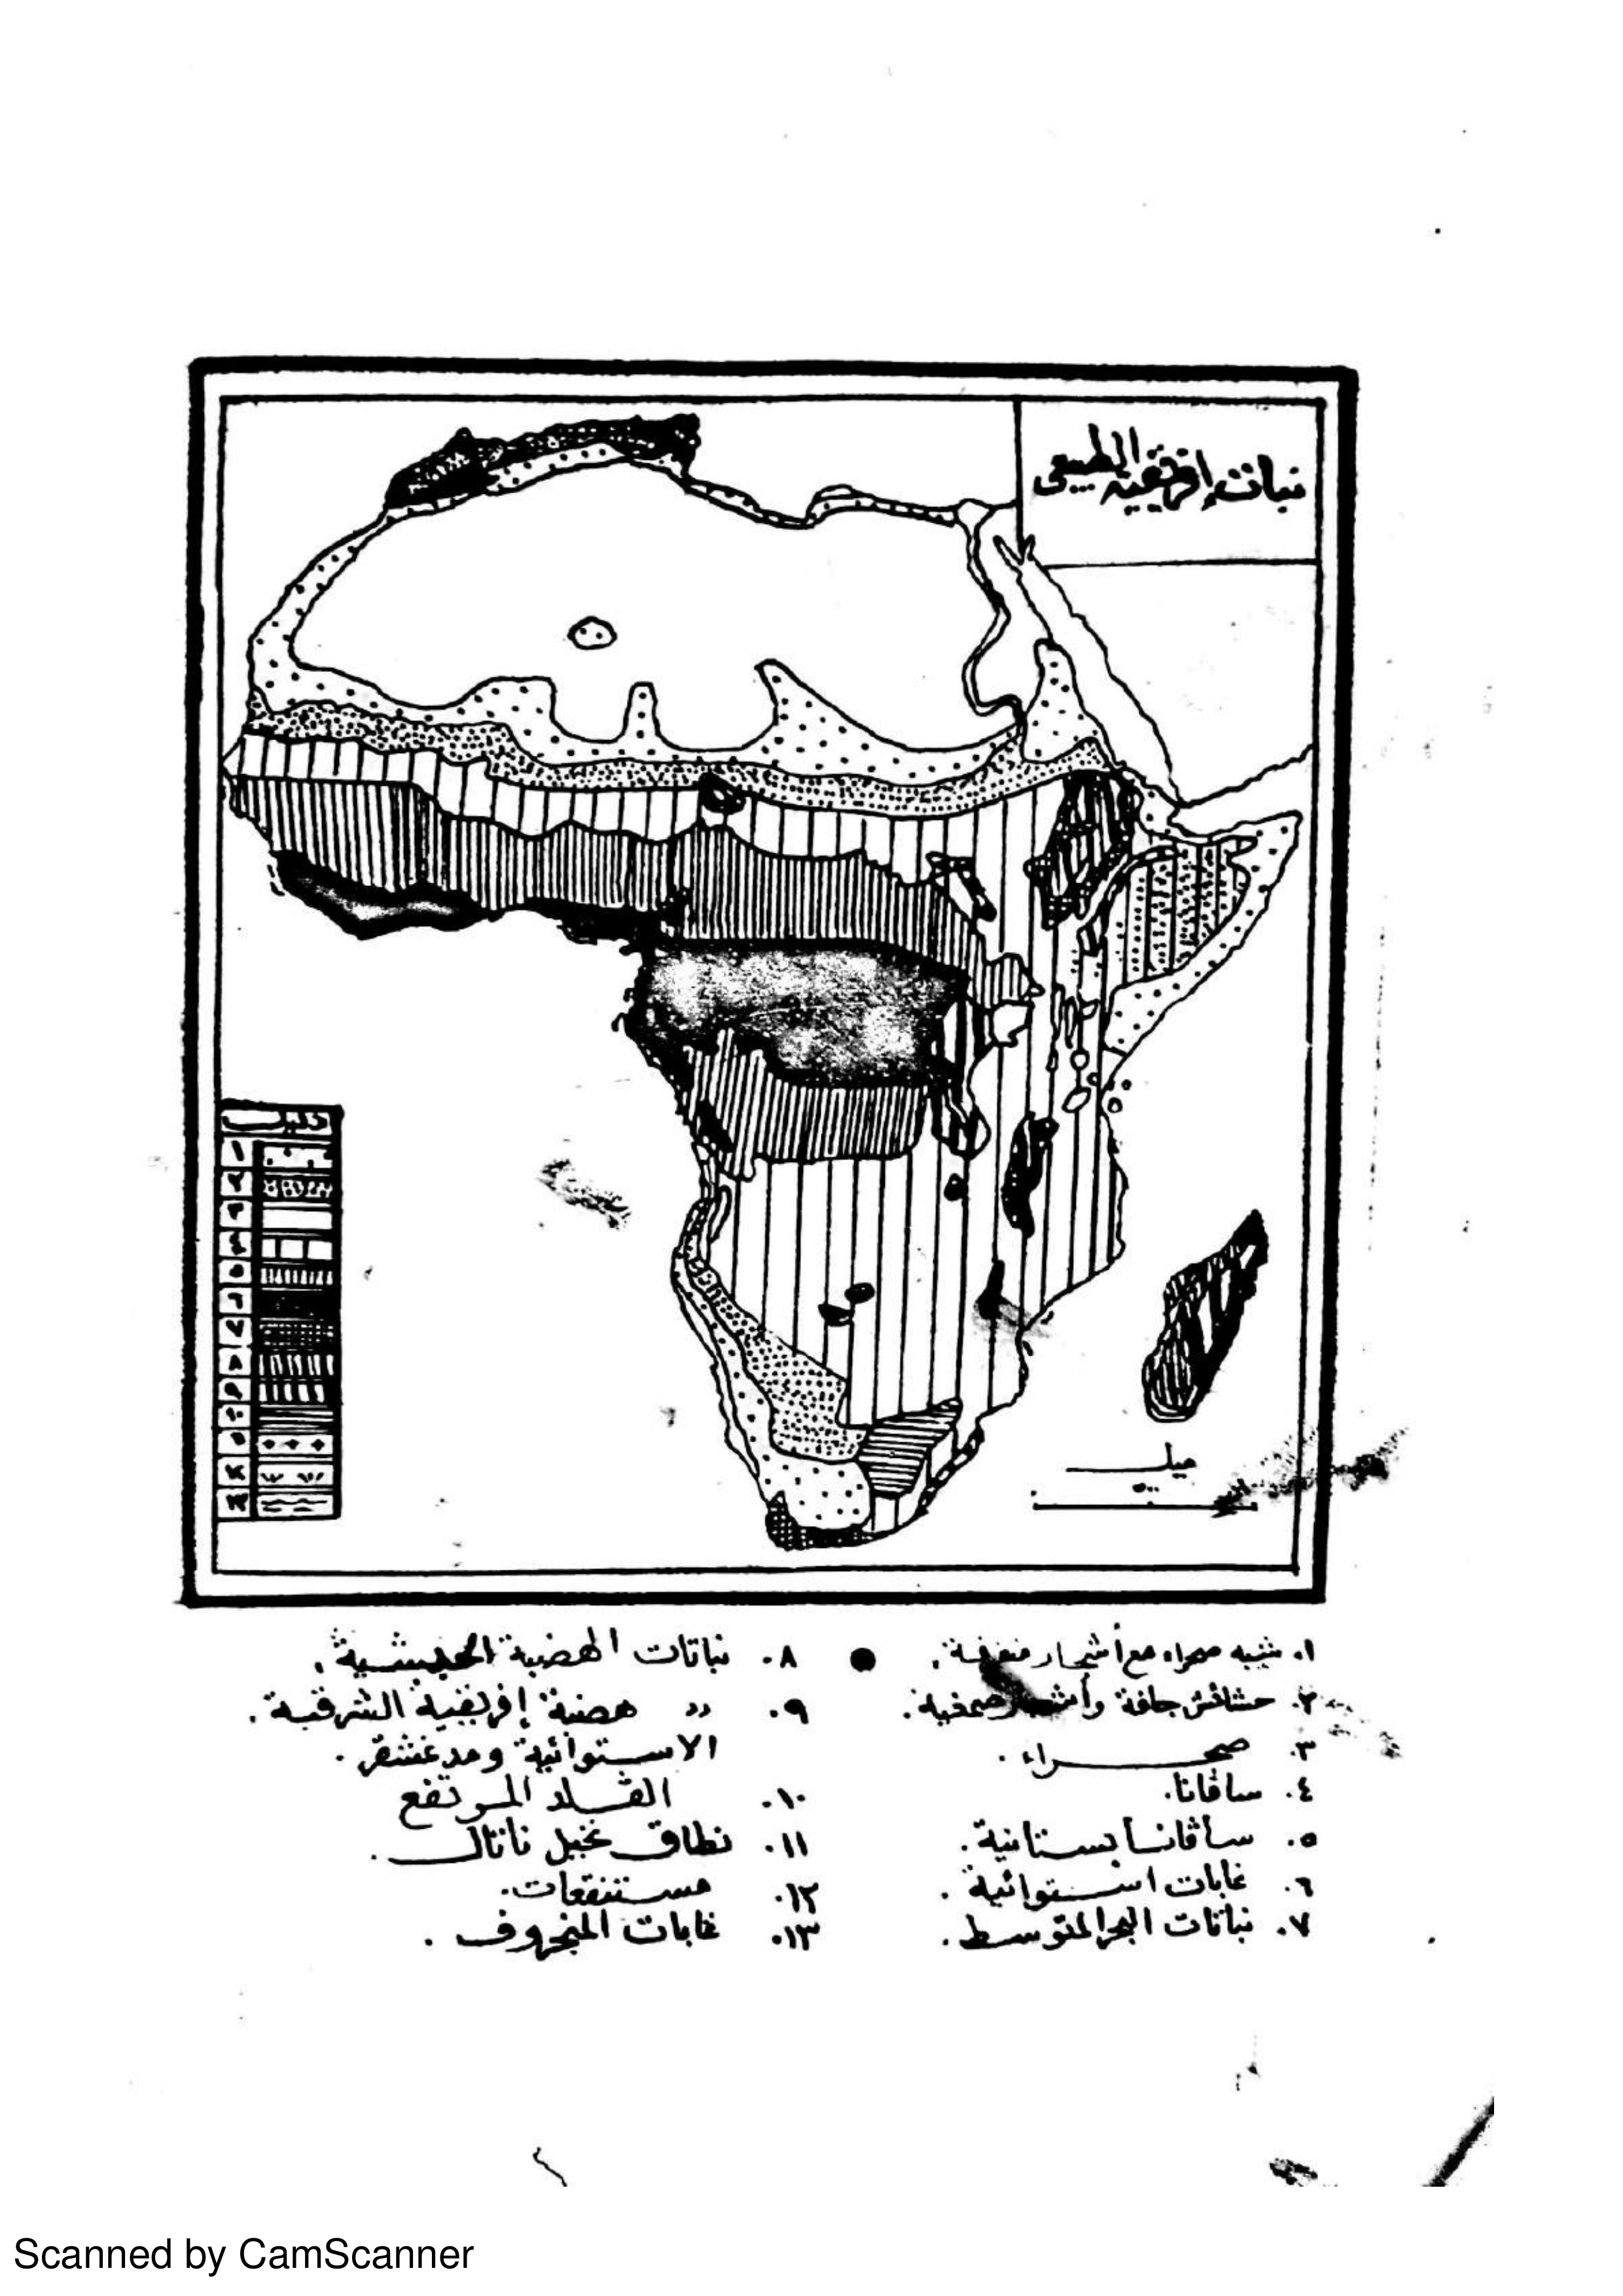 نبات إفريقية الطبيعى
دليل
١
٢
٣
٤
٥
٦
٧
٨
٩
١٠
١١
١٢
١٣
ميل
٥٠٠
١. شبه صحراء مع أشجار متفرقة.
٢. حشائش جافة وأشجار صمغية.
٣. صحراء.
٤. ساڤانا.
٥. ساڤانا بستانية.
٦. غابات استوائية.
٧. نباتات البحر المتوسط.
٨. نباتات الهضبة الحبشية.
٩. " هضبة إفريقية الشرقية
الاستوائية ومدغشقر.
١٠. الڤلد المرتفع
١١. نطاق نخيل ناتال.
١٢. مستنقعات.
١٣. غابات المنجروف.
Scanned by CamScanner